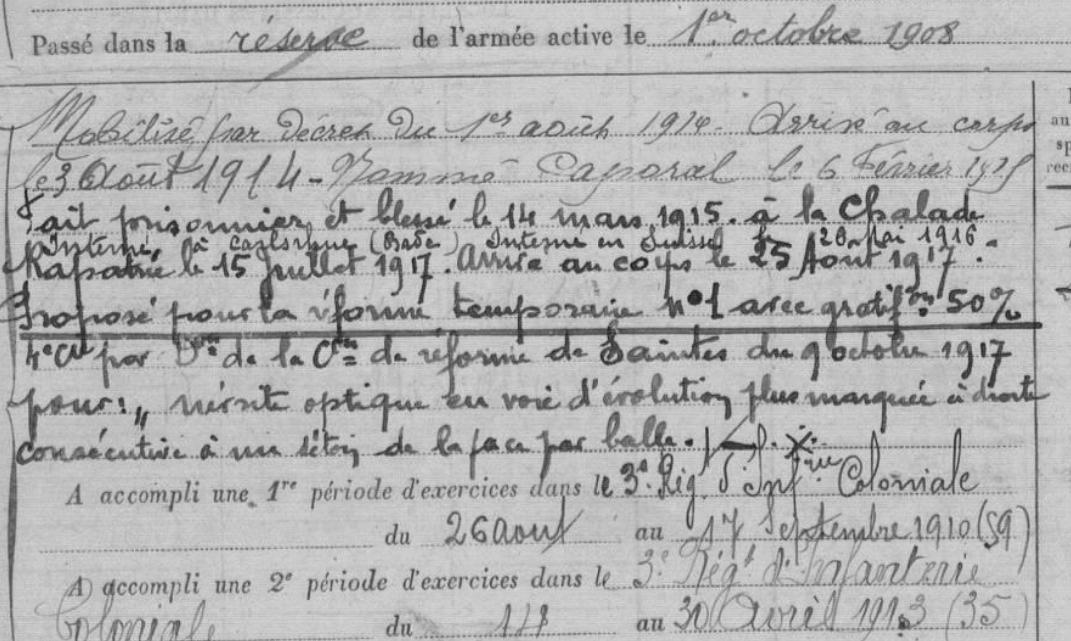 Passé dans la réserve de l'armée active le 1er octobre 1908
Mobilisé par décret du 1er août 1914. Arrivé au corps
le 3 Août 1914 - Nommé Caporal le 6 Février 1915
Fait prisonnier et blessé le 14 mars 1915. à la Chalade
Interné à Carlsruhe (Bade) Interné en Suisse le 20 Mai 1916.
Rapatrié le 15 Juillet 1917. Arrivé au corps le 25 Aout 1917.
Proposé pour la réforme temporaire n° 1 avec gratifon: 50%
4e Cie par Don de la Con de réforme de Saintes du 9 octobre 1917
pour: „ névrite optique en voie d'évolution plus marquée à droite
consécutive à un séton de la face par balle.
A accompli une 1re période d'exercices dans le 3e Rég. d'Infrie Coloniale
du 26 aout au 17 Septembre 1910 (59)
A accompli une 2e période d'exercices dans le 3e Régt d'Infanterie
Coloniale du 14 au 30 Avril 1913 (35)
au
sp
rec